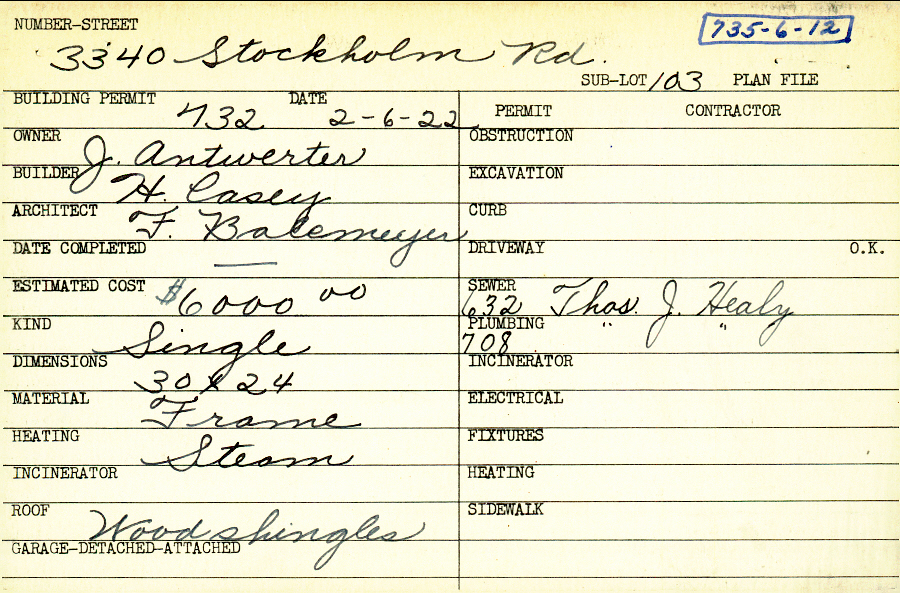 NUMBER-STREET 735-6-12
3340 Stockholm Rd.
SUB-LOT 103 PLAN FILE
BUILDING PERMIT 732 DATE 2-6-22
OWNER J. Antwerter
BUILDER H. Casey
ARCHITECT F. Balemeyer
DATE COMPLETED —
ESTIMATED COST $6000 00
KIND Single
DIMENSIONS 30 x 24
MATERIAL Frame
HEATING Steam
INCINERATOR
ROOF Wood shingles
GARAGE-DETACHED-ATTACHED
PERMIT CONTRACTOR
OBSTRUCTION
EXCAVATION
CURB
DRIVEWAY O.K.
SEWER 632 Thos. J. Healy
PLUMBING 708 " "
INCINERATOR
ELECTRICAL
FIXTURES
HEATING
SIDEWALK